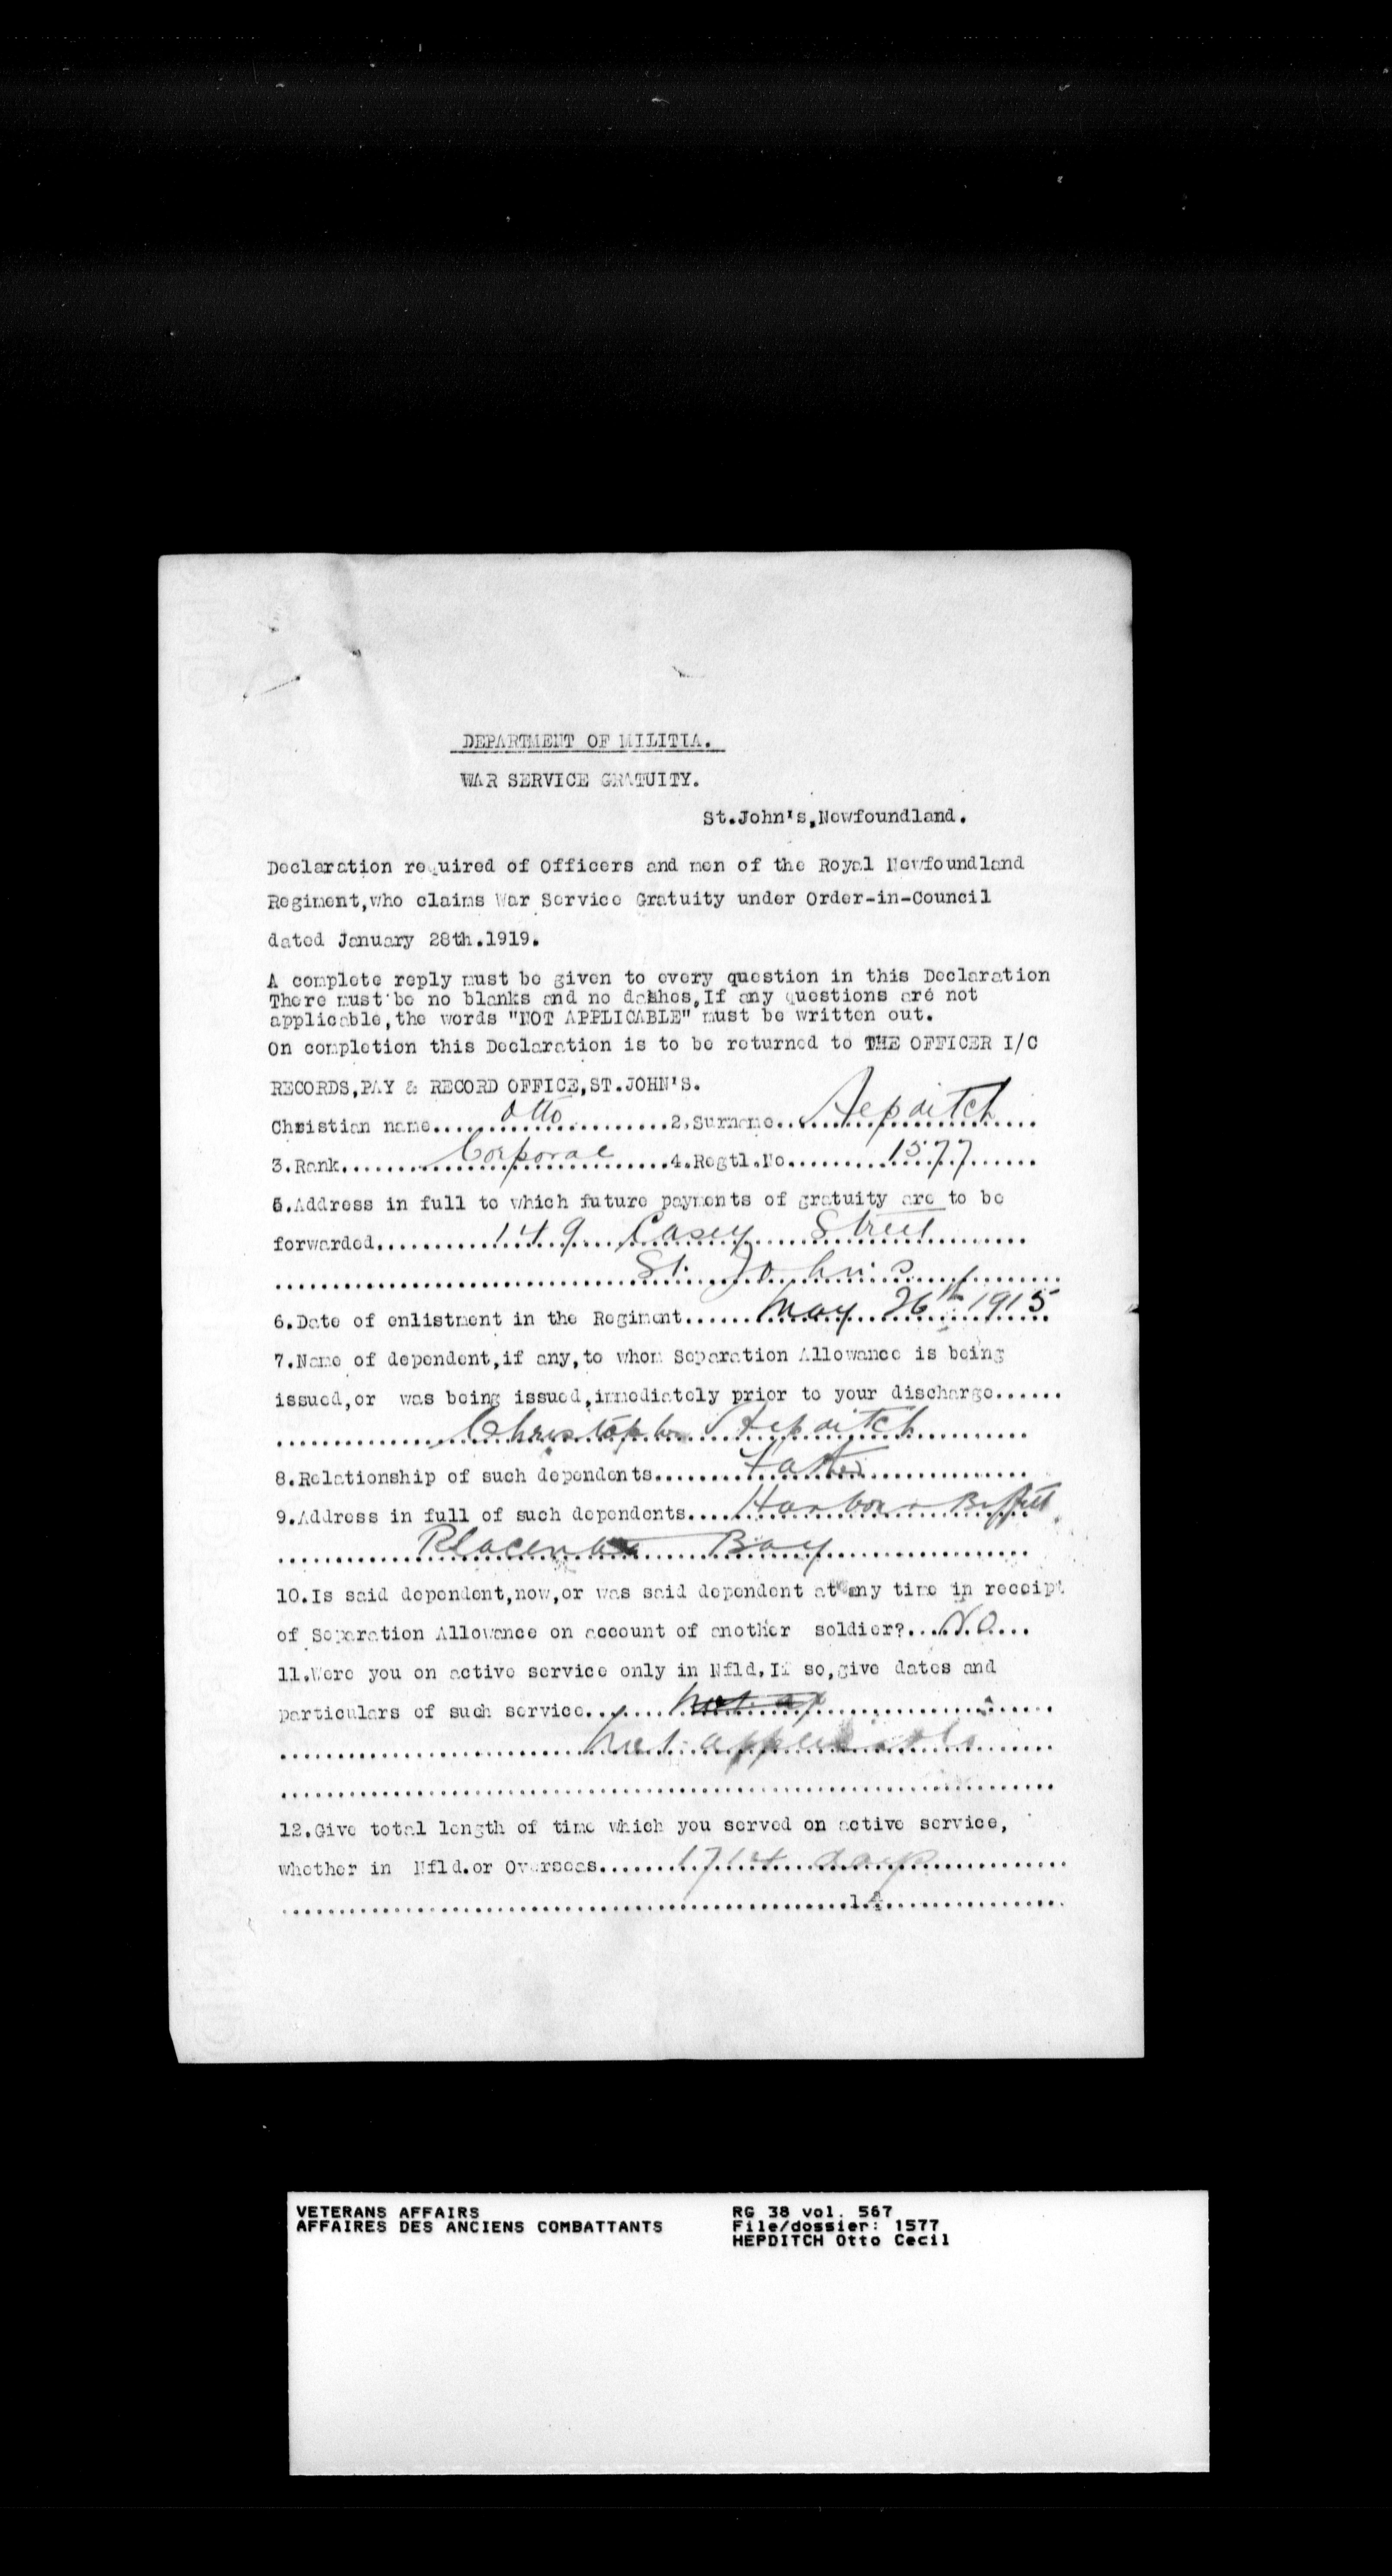 DEPARTMENT OF MILITIA.
WAR SERVICE GRATUITY.
St.John's,Newfoundland.
Declaration required of Officers and men of the Royal Newfoundland
Regiment,who claims War Service Gratuity under Order-in-Council
dated January 28th.1919.
A complete reply must be given to every question in this Declaration
There must be no blanks and no dashes,If any questions are not
applicable,the words "NOT APPLICABLE" must be written out.
On completion this Declaration is to be returned to THE OFFICER I/C
RECORDS,PAY & RECORD OFFICE,ST.JOHN'S.
Christian name....Otto....2.Surname....Hepditch....
3.Rank....Corporal....4.Regtl.No....1577....
5.Address in full to which future payments of gratuity are to be
forwarded....149 Casey Street....
....St. John's....
6.Date of enlistment in the Regiment....May 26th 1915
7.Name of dependent,if any,to whom Separation Allowance is being
issued,or was being issued,immediately prior to your discharge......
....Christopher Hepditch....
8.Relationship of such dependents....Father....
9.Address in full of such dependents....Harbour Buffett
....Placentia Bay....
10.Is said dependent,now,or was said dependent at any time in receipt
of Separation Allowance on account of another soldier?....No....
11.Were you on active service only in Nfld.If so,give dates and
particulars of such service....not ap....
....Not applicable....
12.Give total length of time which you served on active service,
whether in Nfld.or Overseas....1714 days....
....14....
VETERANS AFFAIRS RG 38 vol. 567
AFFAIRES DES ANCIENS COMBATTANTS File/dossier: 1577
HEPDITCH Otto Cecil